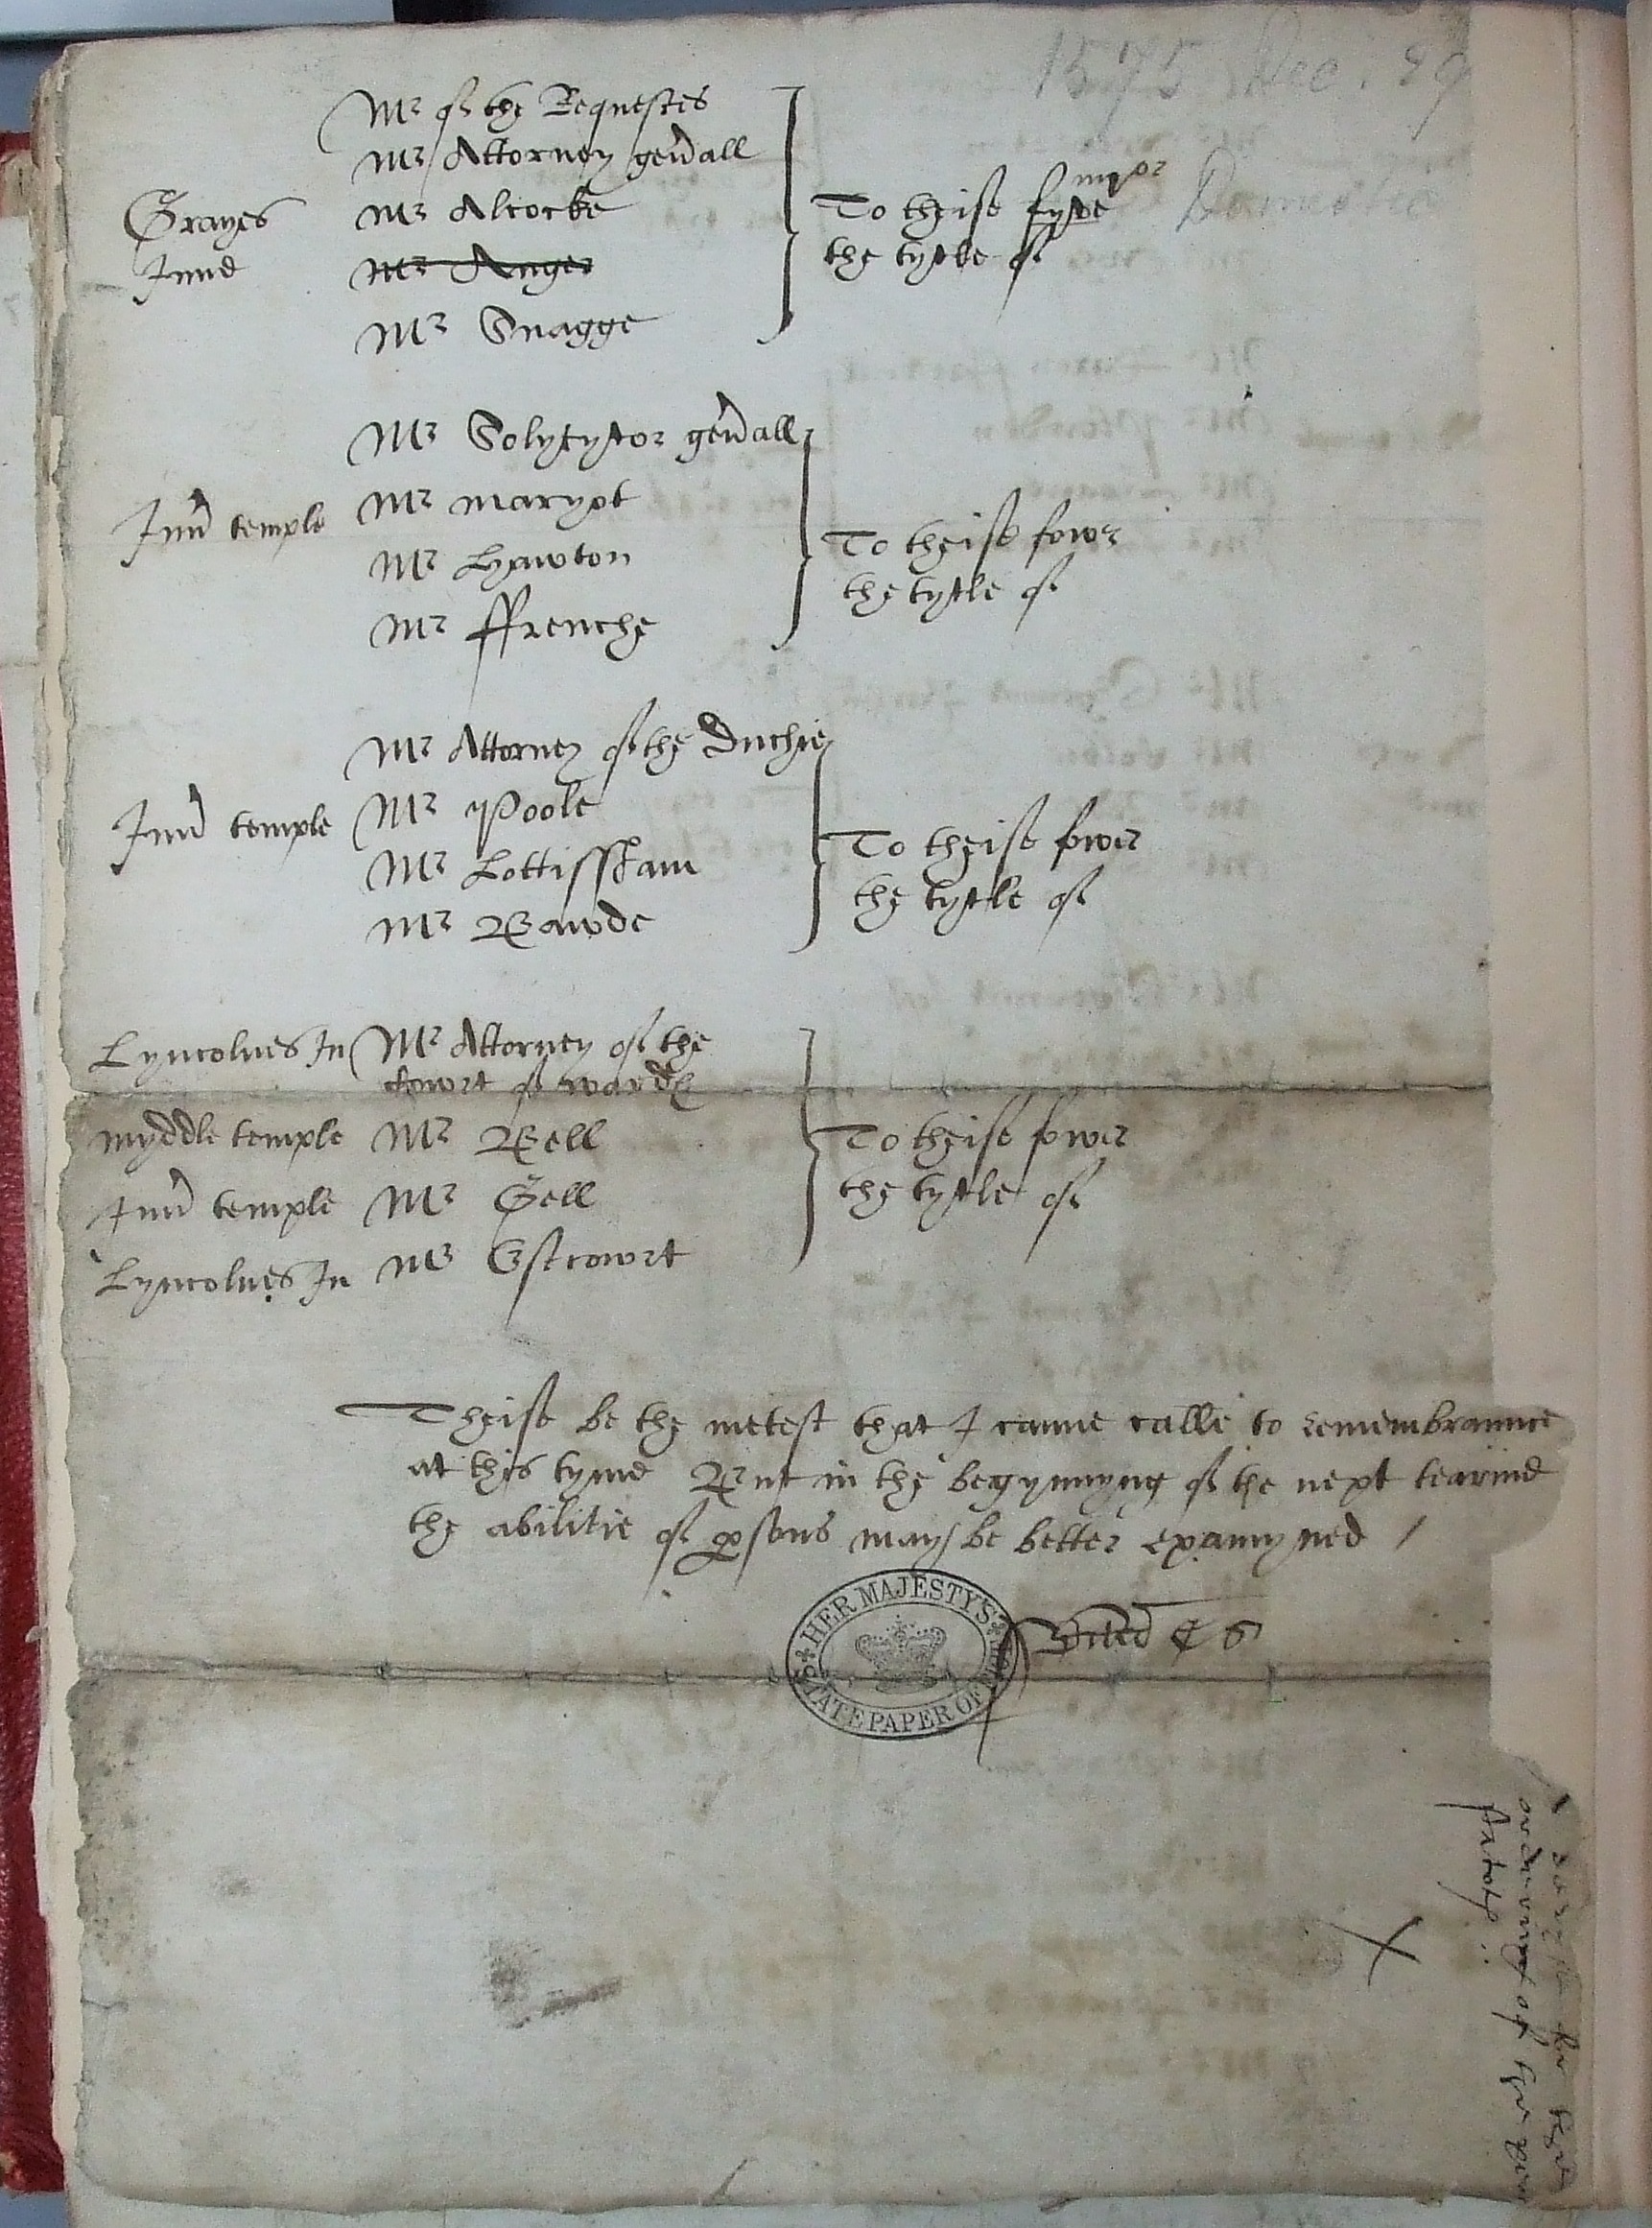 1575 Dec. 29
Domestic
Mr of the Requestes
Mr Attorney gen'all
Grayes Mr Alcocke
Inne Mr Anger
Mr Snagge
To theise fyve
the tytle of
Mr Solycytor gen'all
Inn' temple Mr Maryot
Mr Lyawton
Mr ffrenche
To theise fower
the tytle of
Mr Attorney of the Duchie
Inn' temple Mr Poole
Mr Lottissham
Mr Bawde
To theise fower
the tytle of
Lyncolnes In Mr Attorney of the
Cowrt of wardes
Myddle temple Mr Bell
Inn' temple Mr Gell
Lyncolnes In Mr Estcowrt
To theise fower
the tytle of
Theise be the metest that I canne calle to remembraunce
at this tyme But in the begynnyng of the next tearme
the abilitie of p'sons may be better examyned /
HER MAJESTY'S STATE PAPER OFFICE
of the